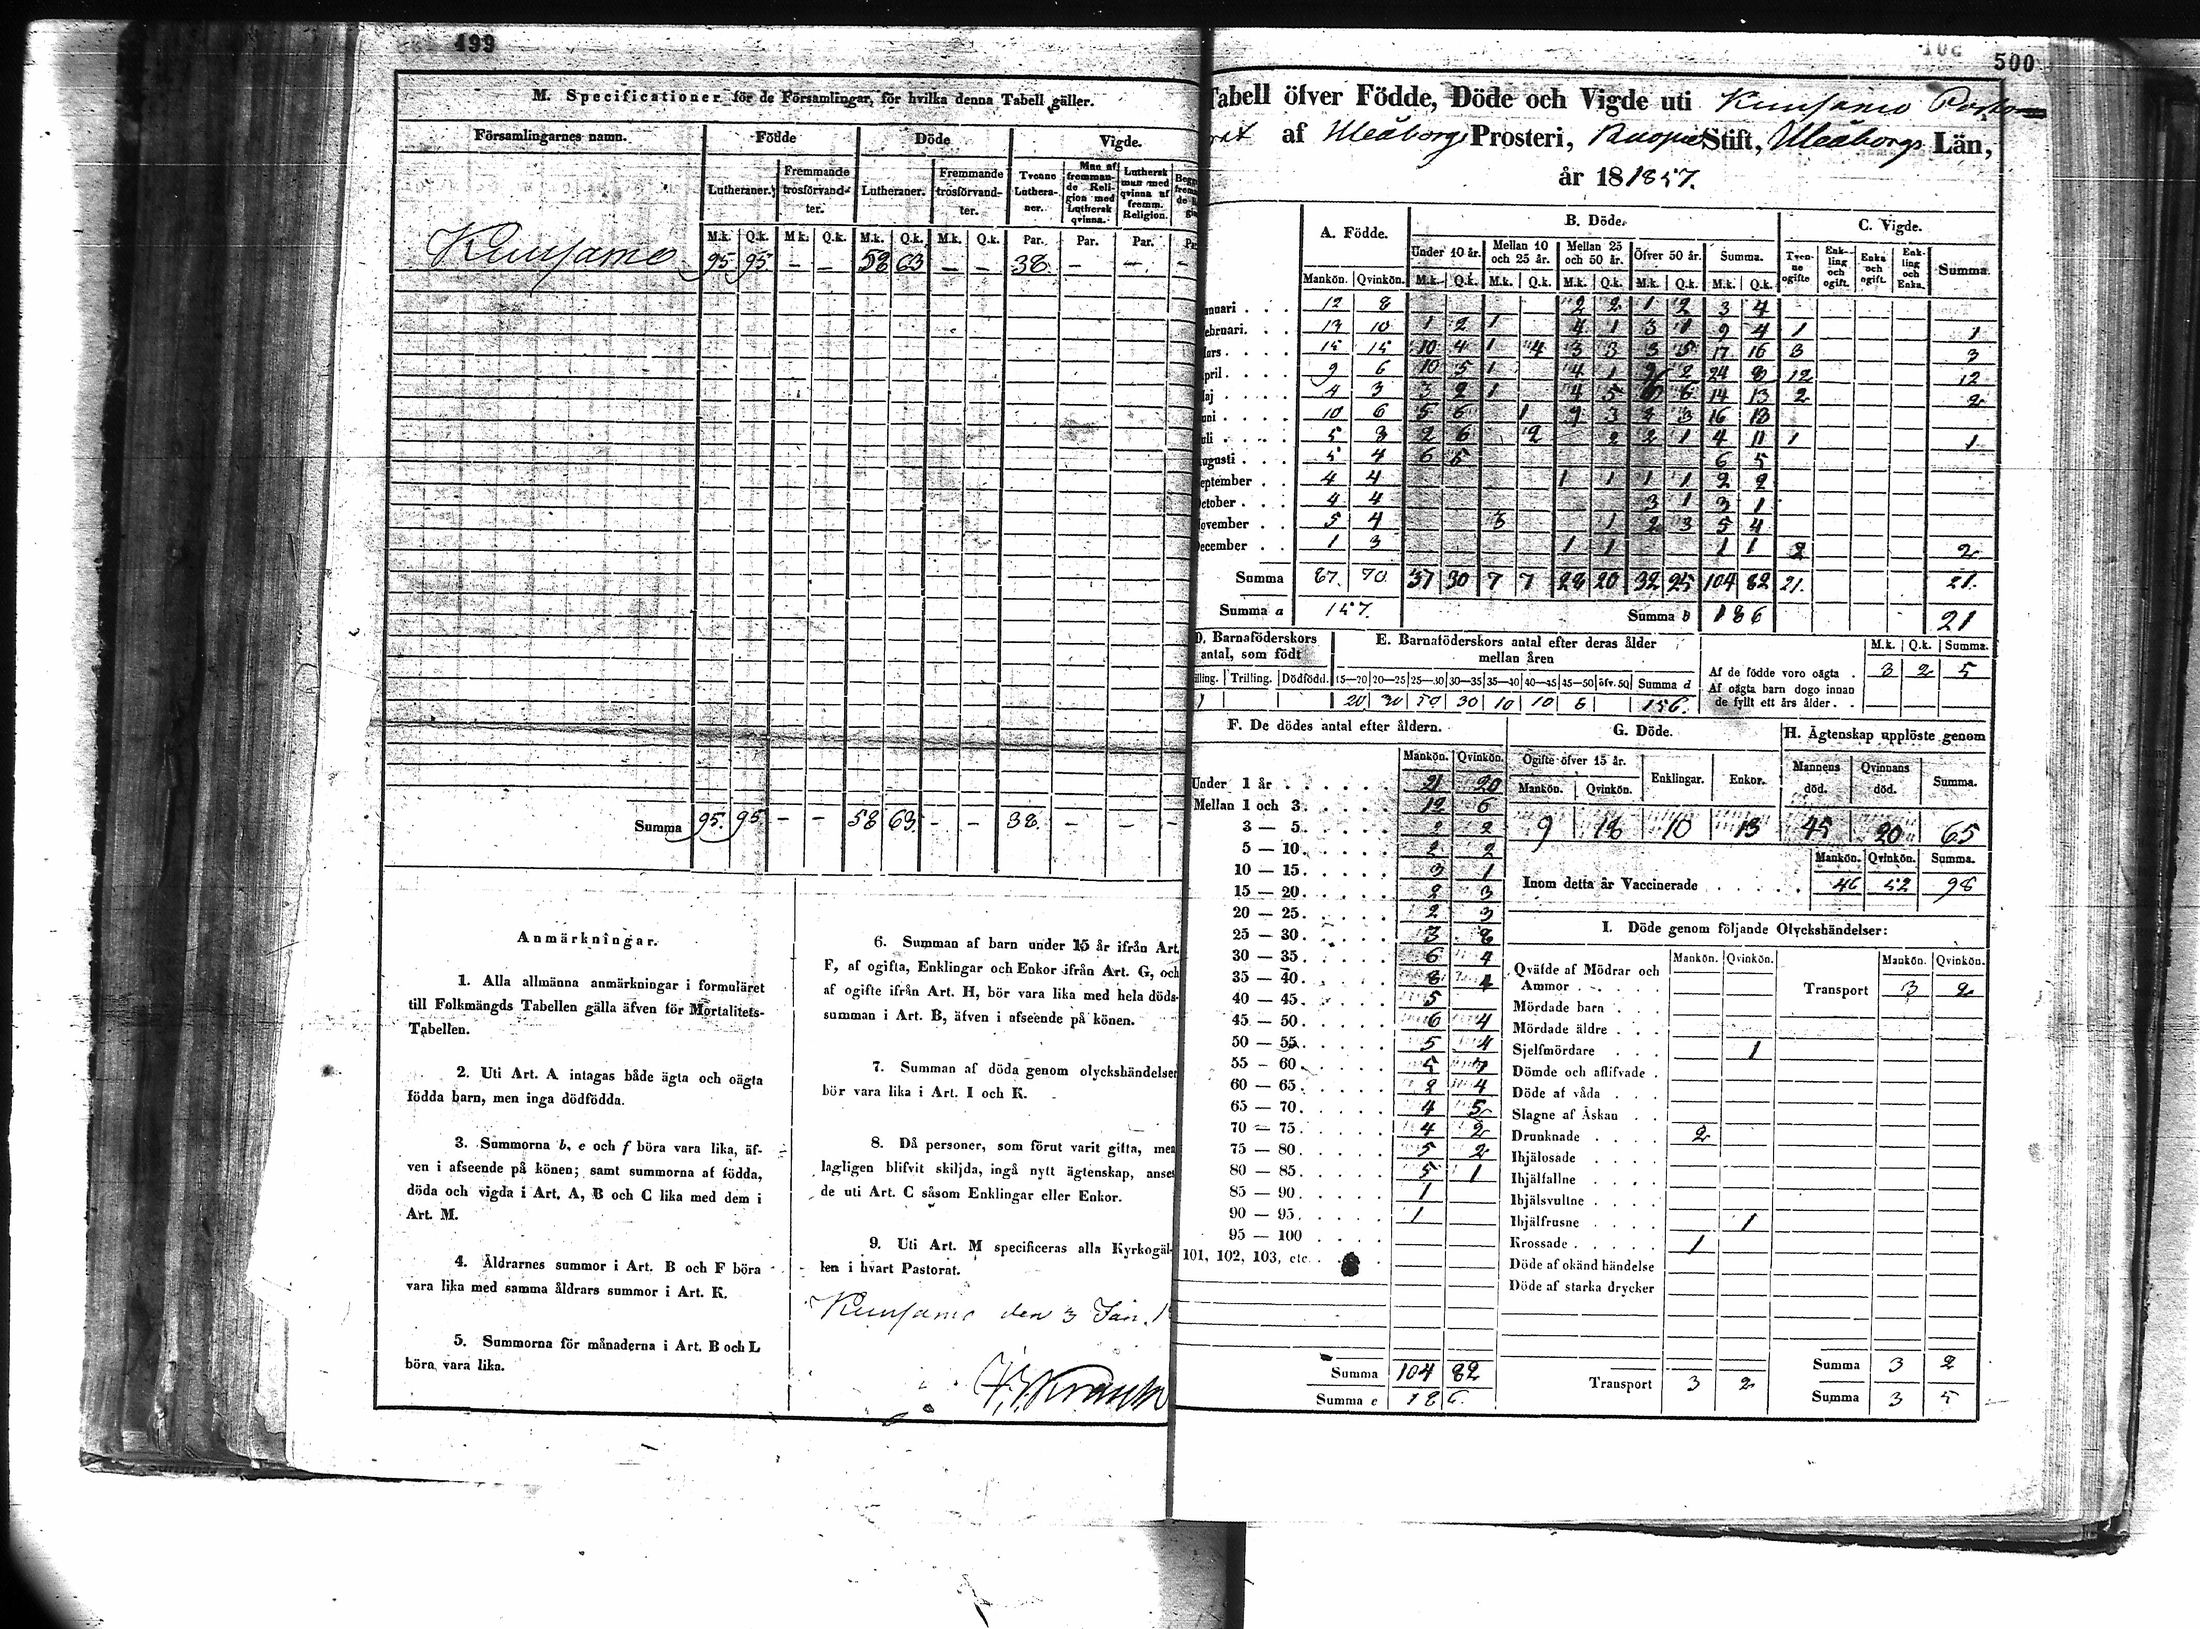 499
M. Specificationer för de Församlingar, för hvilka denna Tabell gäller.
Församlingarnes namn. Födde Döde Vigde.
Lutheraner. Fremmande trosförvandter. Lutheraner. Fremmande trosförvandter. Tvenne Lutheraner. Man af fremmande Religion med Luthersk qvinna. Luthersk man med qvinna af fremm. Religion.
M.k. Q.k. M.k. Q.k. M.k. Q.k. M.k. Q.k. Par. Par. Par.
Kuusamo 95 95 – – 58 63 – – 38 – – –
Summa 95. 95. – – 58 63. – – 38. – – –
Anmärkningar.
1. Alla allmänna anmärkningar i formuläret
till Folkmängds Tabellen gälla äfven för Mortalitets-
Tabellen.
2. Uti Art. A intagas både ägta och oägta
födda barn, men inga dödfödda.
3. Summorna b, e och f böra vara lika, äf-
ven i afseende på könen; samt summorna af födda,
döda och vigda i Art. A, B och C lika med dem i
Art. M.
4. Åldrarnes summor i Art. B och F böra
vara lika med samma åldrars summor i Art. K.
5. Summorna för månaderna i Art. B och L
böra vara lika.
6. Summan af barn under 15 år ifrån Art.
F, af ogifta, Enklingar och Enkor ifrån Art. G, och
af ogifte ifrån Art. H, bör vara lika med hela döds-
summan i Art. B, äfven i afseende på könen.
7. Summan af döda genom olyckshändelser
bör vara lika i Art. I och K.
8. Då personer, som förut varit gifta, men
lagligen blifvit skiljda, ingå nytt ägtenskap, anses
de uti Art. C såsom Enklingar eller Enkor.
9. Uti Art. M specificeras alla Kyrkogäl-
len i hvart Pastorat.
Kuusamo den 3 Jan.
500
Tabell öfver Födde, Döde och Vigde uti Kuusamo Pasto-
rat af Uleåborgs Prosteri, Kuopio Stift, Uleåborgs Län,
år 18 1857.
A. Födde. B. Döde. C. Vigde.
Under 10 år. Mellan 10 och 25 år. Mellan 25 och 50 år. Öfver 50 år. Summa. Tvenne ogifte Enkling och ogift. Enka och ogift. Enkling och Enka. Summa.
Mankön. Qvinkön. M.k. Q.k. M.k. Q.k. M.k. Q.k. M.k. Q.k. M.k. Q.k.
Januari 12 8 2 2 1 2 3 4
Februari. 13 10 1 2 1 4 1 3 1 9 4 1 1
Mars 15 15 10 4 1 4 3 3 3 5 17 16 3 3
April 9 6 10 5 1 4 1 9 2 24 8 12 12
Maj 4 3 3 2 1 4 5 6 6 14 13 2 2
Juni 10 6 5 6 1 9 3 2 3 16 13
Juli 5 3 2 6 2 2 2 1 4 11 1 1
Augusti 5 4 6 5 6 5
September 4 4 1 1 1 1 2 2
October 4 4 3 1 3 1
November 5 4 3 1 2 3 5 4
December 1 3 1 1 1 1 2 2
Summa 87. 70. 37 30 7 7 28 20 32 25 104 82 21. 21.
Summa a 157. Summa b 186 21
D. Barnaföderskors antal, som födt
E. Barnaföderskors antal efter deras ålder mellan åren
M.k. Q.k. Summa.
Trilling. Dödfödd. 15—20 20—25 25—30 30—35 35—40 40—45 45—50 öfv. 50 Summa d
1 20 30 50 30 10 10 6 156.
Af de födde voro oägta 3 2 5
Af oägta barn dogo innan
de fyllt ett års ålder.
F. De dödes antal efter åldern.
Mankön. Qvinkön.
Under 1 år 21 20
Mellan 1 och 3 12 6
3 — 5 2 2
5 — 10 2 2
10 — 15 3 1
15 — 20 2 3
20 — 25 2 3
25 — 30 3 8
30 — 35 6 4
35 — 40 8 4
40 — 45 5
45 — 50 6 4
50 — 55 5 4
55 — 60 5 7
60 — 65 2 4
65 — 70 4 5
70 — 75 4 2
75 — 80 5 2
80 — 85 5 1
85 — 90 1
90 — 95 1
95 — 100
101, 102, 103, etc.
Summa 104 82
Summa e 186.
G. Döde.
Ogifte öfver 15 år. Enklingar. Enkor.
Mankön. Qvinkön.
9 18 10 13
H. Ägtenskap upplöste genom
Mannens död. Qvinnans död. Summa.
45 20 65
Mankön. Qvinkön. Summa.
Inom detta år Vaccinerade 46 52 98
I. Döde genom följande Olyckshändelser:
Mankön. Qvinkön. Mankön. Qvinkön.
Qväfde af Mödrar och
Ammor
Transport 3 2
Mördade barn
Mördade äldre
Sjelfmördare 1
Dömde och aflifvade
Döde af våda
Slagne af Åskan
Drunknade 2
Ihjälosade
Ihjälfallne
Ihjälsvultne
Ihjälfrusne 1
Krossade 1
Döde af okänd händelse
Döde af starka drycker
Transport 3 2
Summa 3 2
Summa 3 5